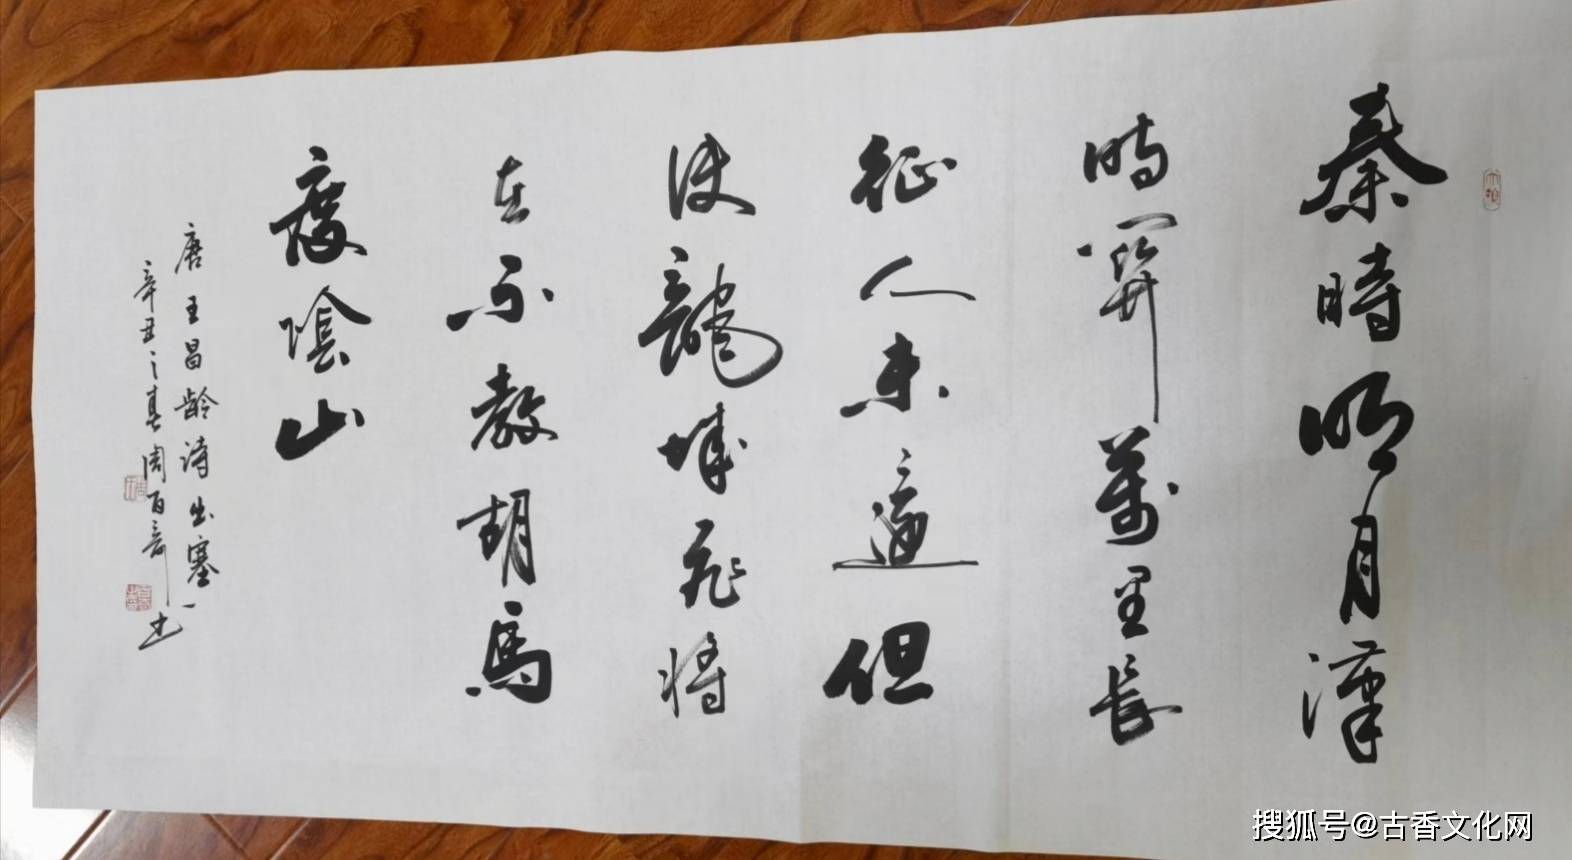 秦時明月漢
時關萬里長
征人未還但
使龍城飛將
在不教胡馬
度陰山
唐王昌齡詩出塞一
辛丑之春周百书
搜狐号@古香文化网